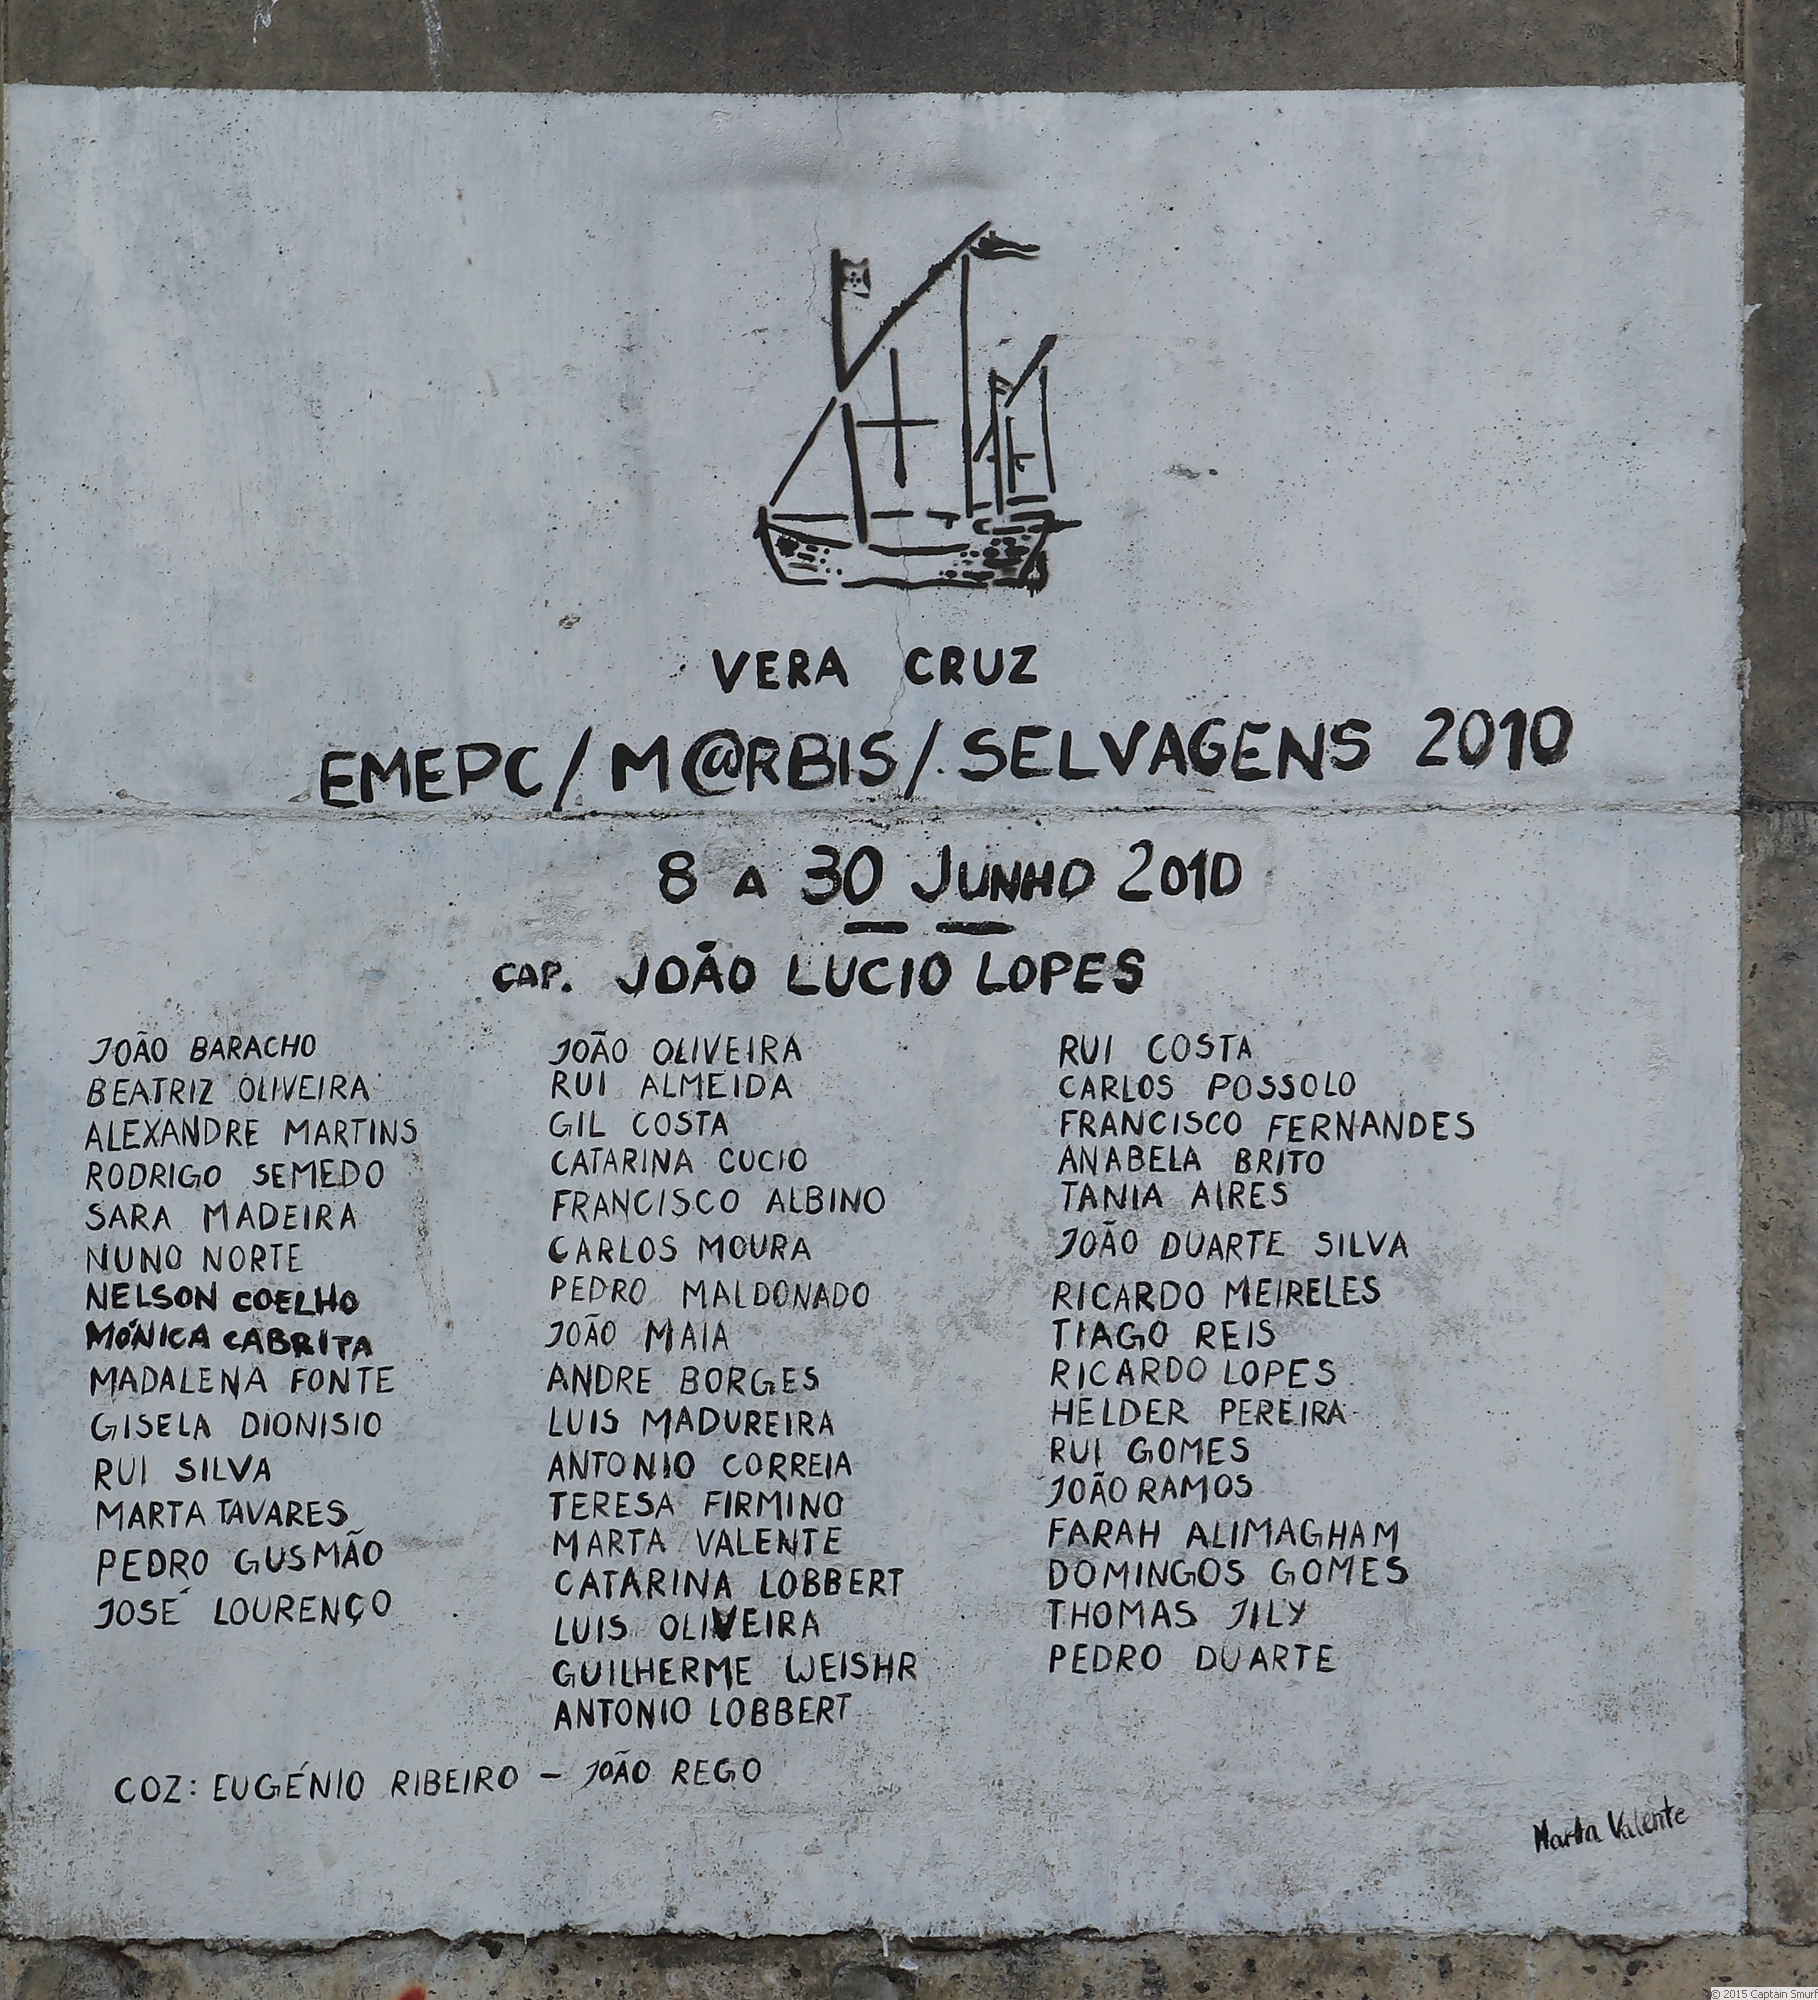 VERA CRUZ
EMEPC/M@RBIS/SELVAGENS 2010
8 A 30 JUNHO 2010
CAP. JOÃO LUCIO LOPES
JOÃO BARACHO
BEATRIZ OLIVEIRA
ALEXANDRE MARTINS
RODRIGO SEMEDO
SARA MADEIRA
NUNO NORTE
NELSON COELHO
MÓNICA CABRITA
MADALENA FONTE
GISELA DIONISIO
RUI SILVA
MARTA TAVARES
PEDRO GUSMÃO
JOSÉ LOURENÇO
JOÃO OLIVEIRA
RUI ALMEIDA
GIL COSTA
CATARINA CUCIO
FRANCISCO ALBINO
CARLOS MOURA
PEDRO MALDONADO
JOÃO MAIA
ANDRE BORGES
LUIS MADUREIRA
ANTONIO CORREIA
TERESA FIRMINO
MARTA VALENTE
CATARINA LOBBERT
LUIS OLIVEIRA
GUILHERME WEISHR
ANTONIO LOBBERT
RUI COSTA
CARLOS POSSOLO
FRANCISCO FERNANDES
ANABELA BRITO
TANIA AIRES
JOÃO DUARTE SILVA
RICARDO MEIRELES
TIAGO REIS
RICARDO LOPES
HELDER PEREIRA
RUI GOMES
JOÃO RAMOS
FARAH ALIMAGHAM
DOMINGOS GOMES
THOMAS JILY
PEDRO DUARTE
COZ: EUGÉNIO RIBEIRO - JOÃO REGO
Marta Valente
© 2015 Captain Smurf